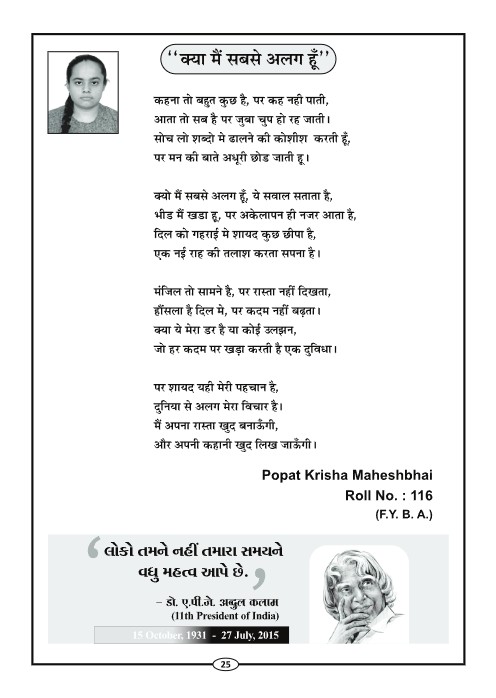 “क्या मैं सबसे अलग हूँ”
कहना तो बहुत कुछ है, पर कह नही पाती,
आता तो सब है पर जुबा चुप हो रह जाती।
सोच लो शब्दो मे ढालने की कोशीश करती हूँ,
पर मन की बाते अधूरी छोड जाती हू।
क्यो मैं सबसे अलग हूँ, ये सवाल सताता है,
भीड मैं खडा हू, पर अकेलापन ही नजर आता है,
दिल को गहराई मे शायद कुछ छीपा है,
एक नई राह की तलाश करता सपना है।
मंजिल तो सामने है, पर रास्ता नहीं दिखता,
हौंसला है दिल मे, पर कदम नहीं बढ़ता।
क्या ये मेरा डर है या कोई उलझन,
जो हर कदम पर खड़ा करती है एक दुविधा।
पर शायद यही मेरी पहचान है,
दुनिया से अलग मेरा विचार है।
मैं अपना रास्ता खुद बनाऊँगी,
और अपनी कहानी खुद लिख जाऊँगी।
Popat Krisha Maheshbhai
Roll No. : 116
(F.Y. B. A.)
‘ લોકો તમને નહીં તમારા સમયને
વધુ મહત્વ આપે છે. ’
– ડો. એ.પી.જે. અબ્દુલ કલામ
(11th President of India)
15 October, 1931 - 27 July, 2015
25